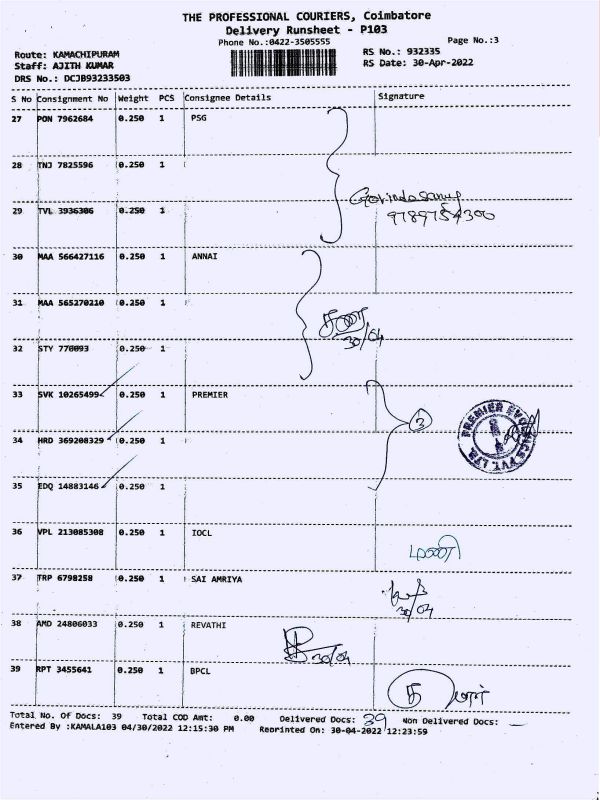 THE PROFESSIONAL COURIERS, Coimbatore
Delivery Runsheet - P103
Phone No.:0422-3505555
Page No.:3
Route: KAMACHIPURAM
RS No.: 932335
Staff: AJITH KUMAR
RS Date: 30-Apr-2022
DRS No.: DCJB93233503
S No Consignment No Weight PCS Consignee Details Signature
27 PON 7962684 0.250 1 PSG
28 TNJ 7825596 0.250 1
29 TVL 3936306 0.250 1
30 MAA 566427116 0.250 1 ANNAI
31 MAA 565270210 0.250 1
30/04
32 STY 770093 0.250 1
33 SVK 10265499 0.250 1 PREMIER
3
34 HRD 369208329 0.250 1
35 EDQ 14883146 0.250 1
36 VPL 213085308 0.250 1 IOCL
மணி
37 TRP 6798258 0.250 1 SAI AMRIYA
30/04
38 AMD 24806033 0.250 1 REVATHI
30/04
39 RPT 3455641 0.250 1 BPCL
Total No. Of Docs: 39 Total COD Amt: 0.00 Delivered Docs: 39 Non Delivered Docs: —
Entered By :KAMALA103 04/30/2022 12:15:30 PM Reprinted On: 30-04-2022 12:23:59